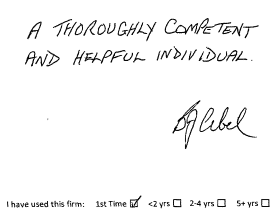 A THOROUGHLY COMPETENT
AND HELPFUL INDIVIDUAL.
I have used this firm: 1st Time ☑ <2 yrs ☐ 2-4 yrs ☐ 5+ yrs ☐